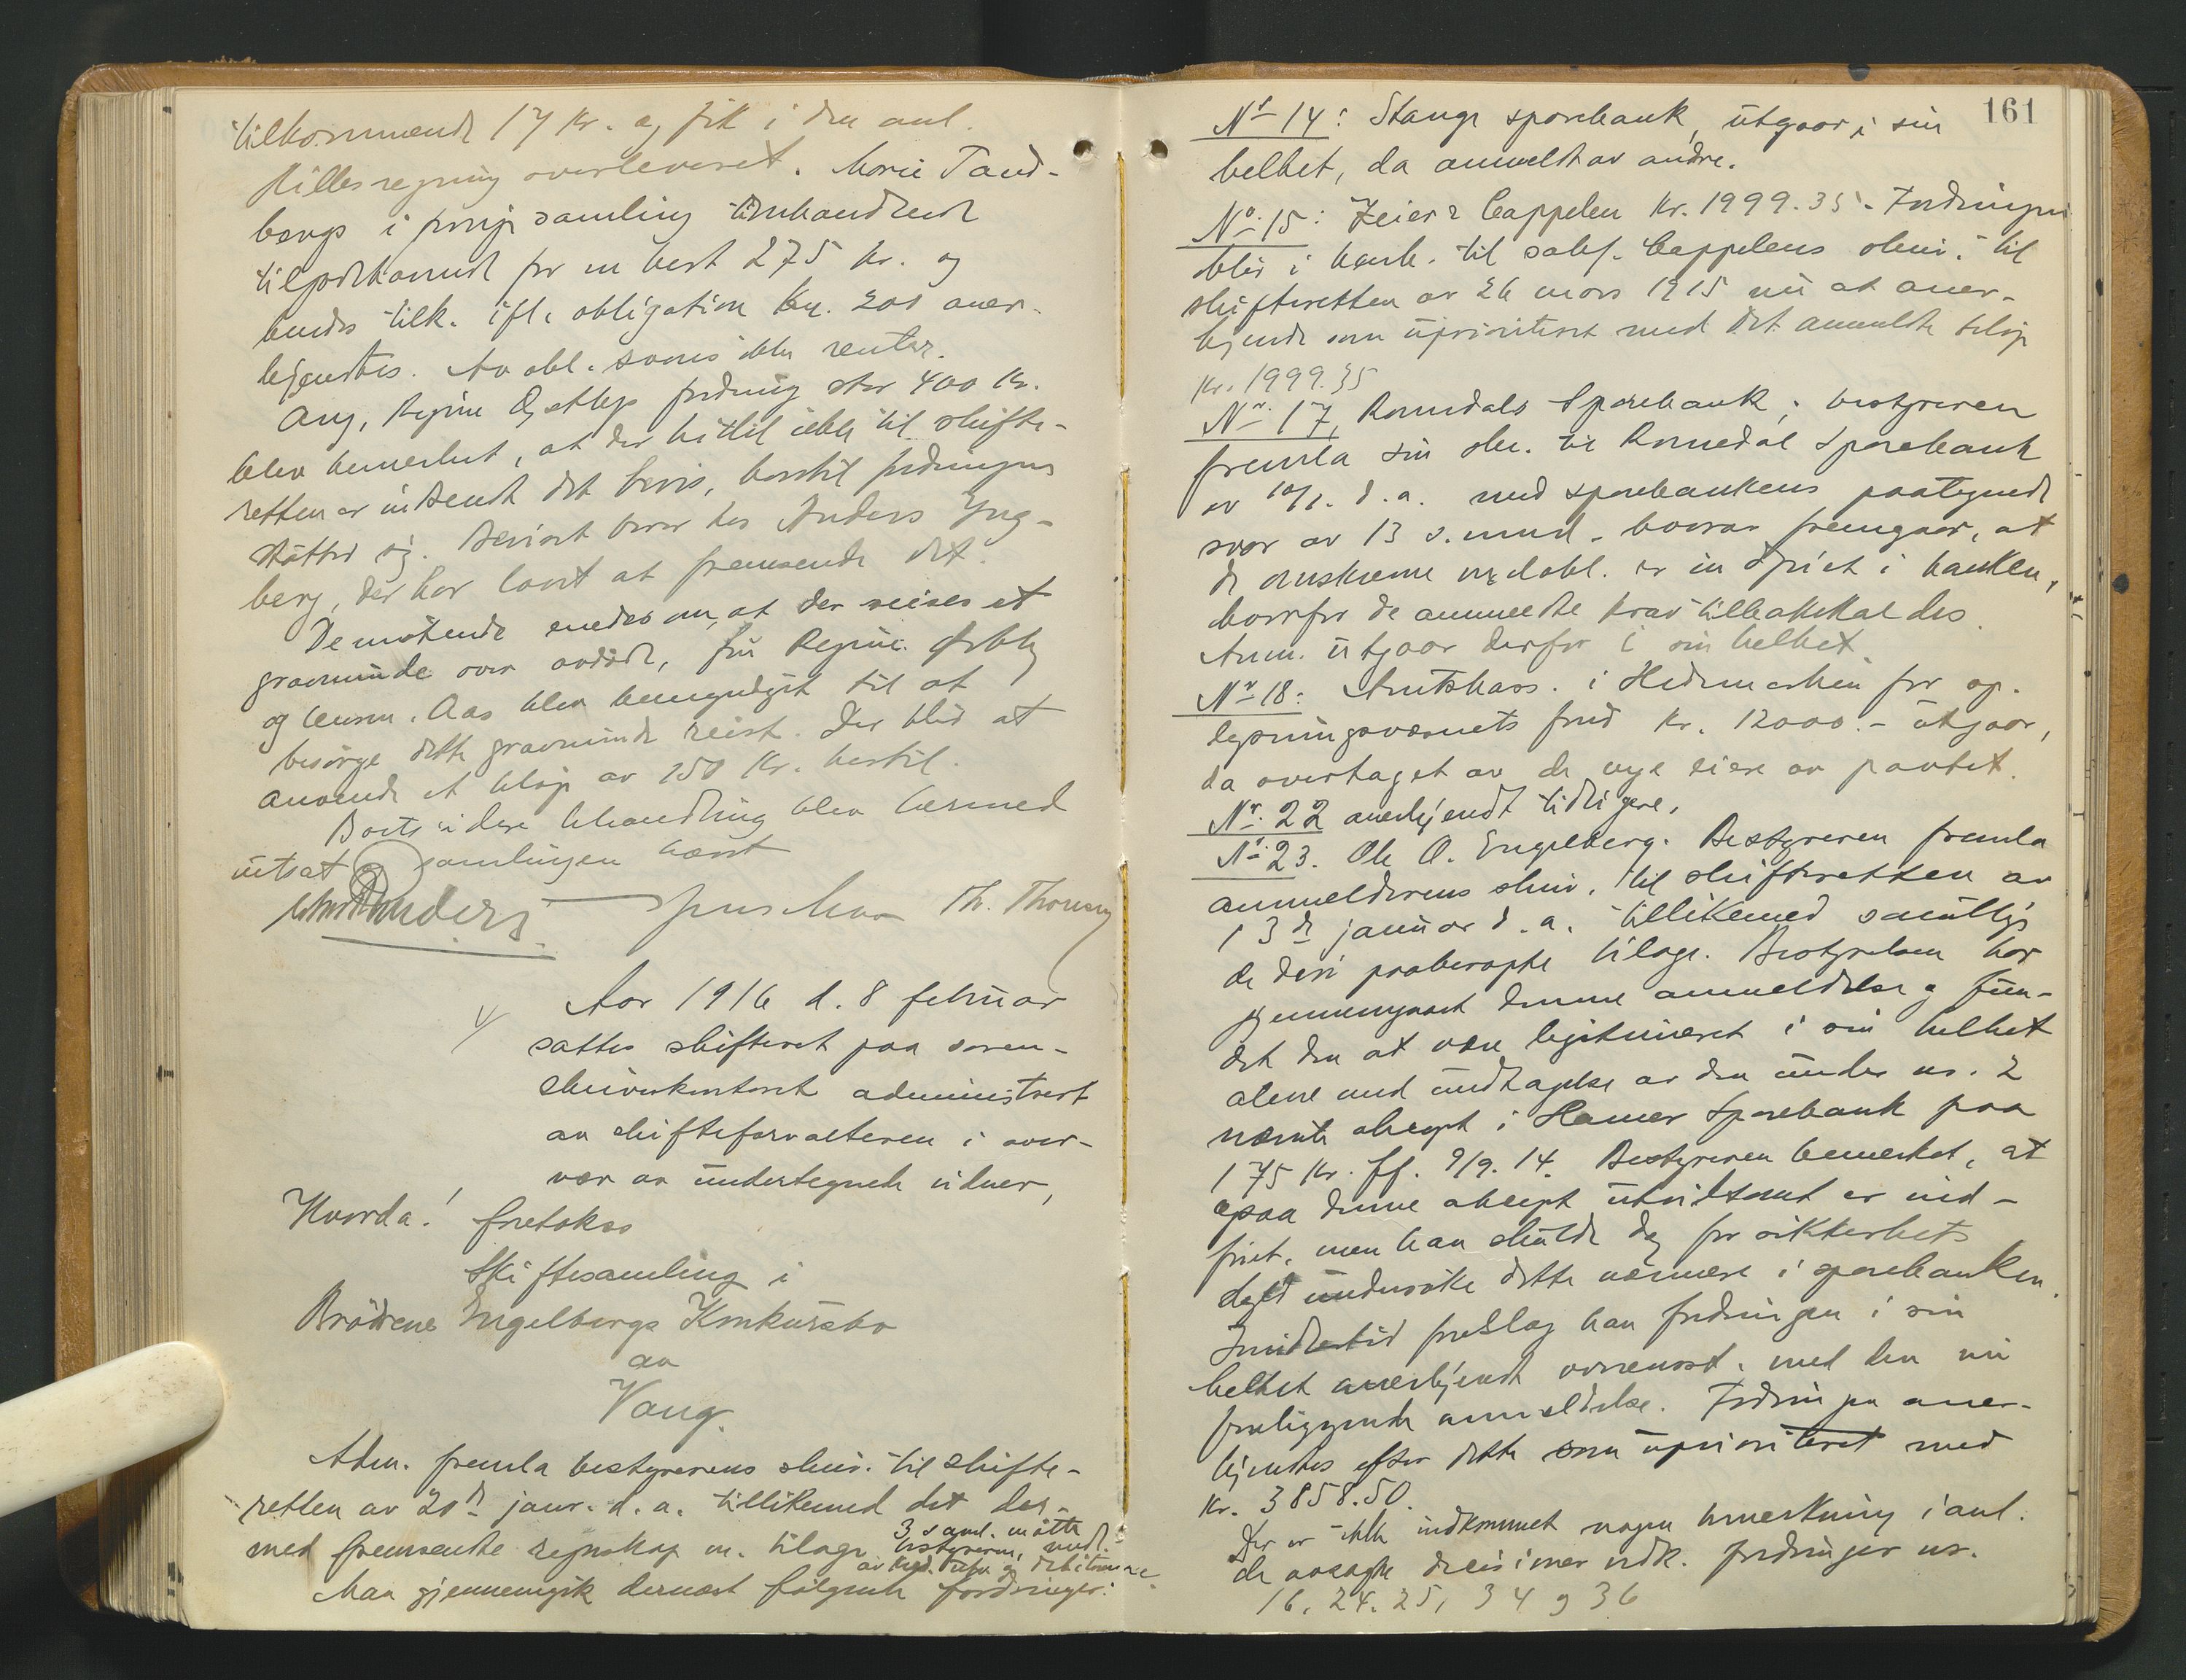 tilkommende 17 Kr. og fik i den anl.
Killesregning overleveret. Marie Tand-
bergs i forrige samling omhandlede
tilgodehavende for en hest 275 kr. og
hendes tilk. ifl. obligation Kr. 200 aner-
kjendtes. Av obl. svares ikke renter.
Ang. Regine fordring stor 400 Kr.
blev bemerket, at der hittil ikke til skifte-
retten er indsendt det bevis, hvortil fordringen
støtter sig. Beviset beror hos Anders Yng-
berg, der har lovet at fremsende det.
De møtende enedes om, at der reises et
gravminde over avdøde, frk Regine
og lensm. Aas blev bemyndiget til at
besørge dette gravminde reist. Der blir at
anvende et beløp av 150 Kr. hertil.
Boets videre behandling blev hermed
utsat og samlingen hævet
Th.
Aar 1916 d. 8 februar
sattes skifteret paa soren-
skriverkontoret administrert
av skifteforvalteren i over-
vær av undertegnede vidner,
Hvorda! foretokes
Skiftesamling i
Brødrene Engelbergs Konkursbo
av
Vang.
Adm. fremla bestyrerens skriv. til skifte-
retten av 20de janr. d. a. tillikemed det der-
med fremsendte regnskap m. bilage 3 saml. møtte bestyreren, medl.
av kred. utv. og debitorene
Man gjennemgik dernæst følgende fordringer:
161
Nr 14: Stange sparebank, utgaar i sin
helhet, da anmeldt av andre.
No 15: Zeier & Cappelen Kr. 1999.35. Fordringen
blir i henh. til sakf. Cappelens skriv. til
skifteretten av 26 mars 1915 nu at aner-
kjende som uprioritert med det anmeldte beløp
Kr. 1999.35
Nr. 17, Romedals Sparebank; bestyreren
fremla sin skr. til Romedal Sparebank
av 10/1. d. a. med sparebankens paategnede
svar av 13 s. mnd. hvorav fremgaar, at
de omskrevne obl. er indfriet i banken,
hvorfor de anmeldte krav tilbakekaldes.
Anm. utgaar derfor i sin helhet.
Nr 18: Amtskass. i Hedemarken for op-
lysningsvæsnets fond Kr. 12000.- utgaar,
da overtaget av de nye eiere av pantet.
Nr. 22 anerkjendt tidligere.
Nr. 23. Ole O. Engelberg. Bestyreren fremla
anmelderens skriv. til skifteretten av
13de januar d. a. tillikemed samtlige
de deri paaberopte bilage. Bestyrelsen har
gjennemgaat denne anmeldelse og fun-
det den at være legitimeret i sin helhet
alene med undtagelse av den under nr. 2
nævnte aksept i Hamar Sparebank paa
175 Kr. ff. 9/9. 14. Bestyreren bemerket, at
ogsaa denne aksept utvilsomt er ind-
friet, men han skulde dog for sikkerhets
skyld undersøke dette nærmere i sparebanken.
Imidlertid foreslog han fordringen i sin
helhet anerkjendt overensst. med den nu
foreliggende anmeldelse. Fordringen aner-
kjendtes efter dette som uprioriteret med
Kr. 3858.50.
Der er ikke indkommet nogen bemerkning i anl.
de avsagte decisioner vedk. fordringer nr.
16, 24. 25, 34 og 36